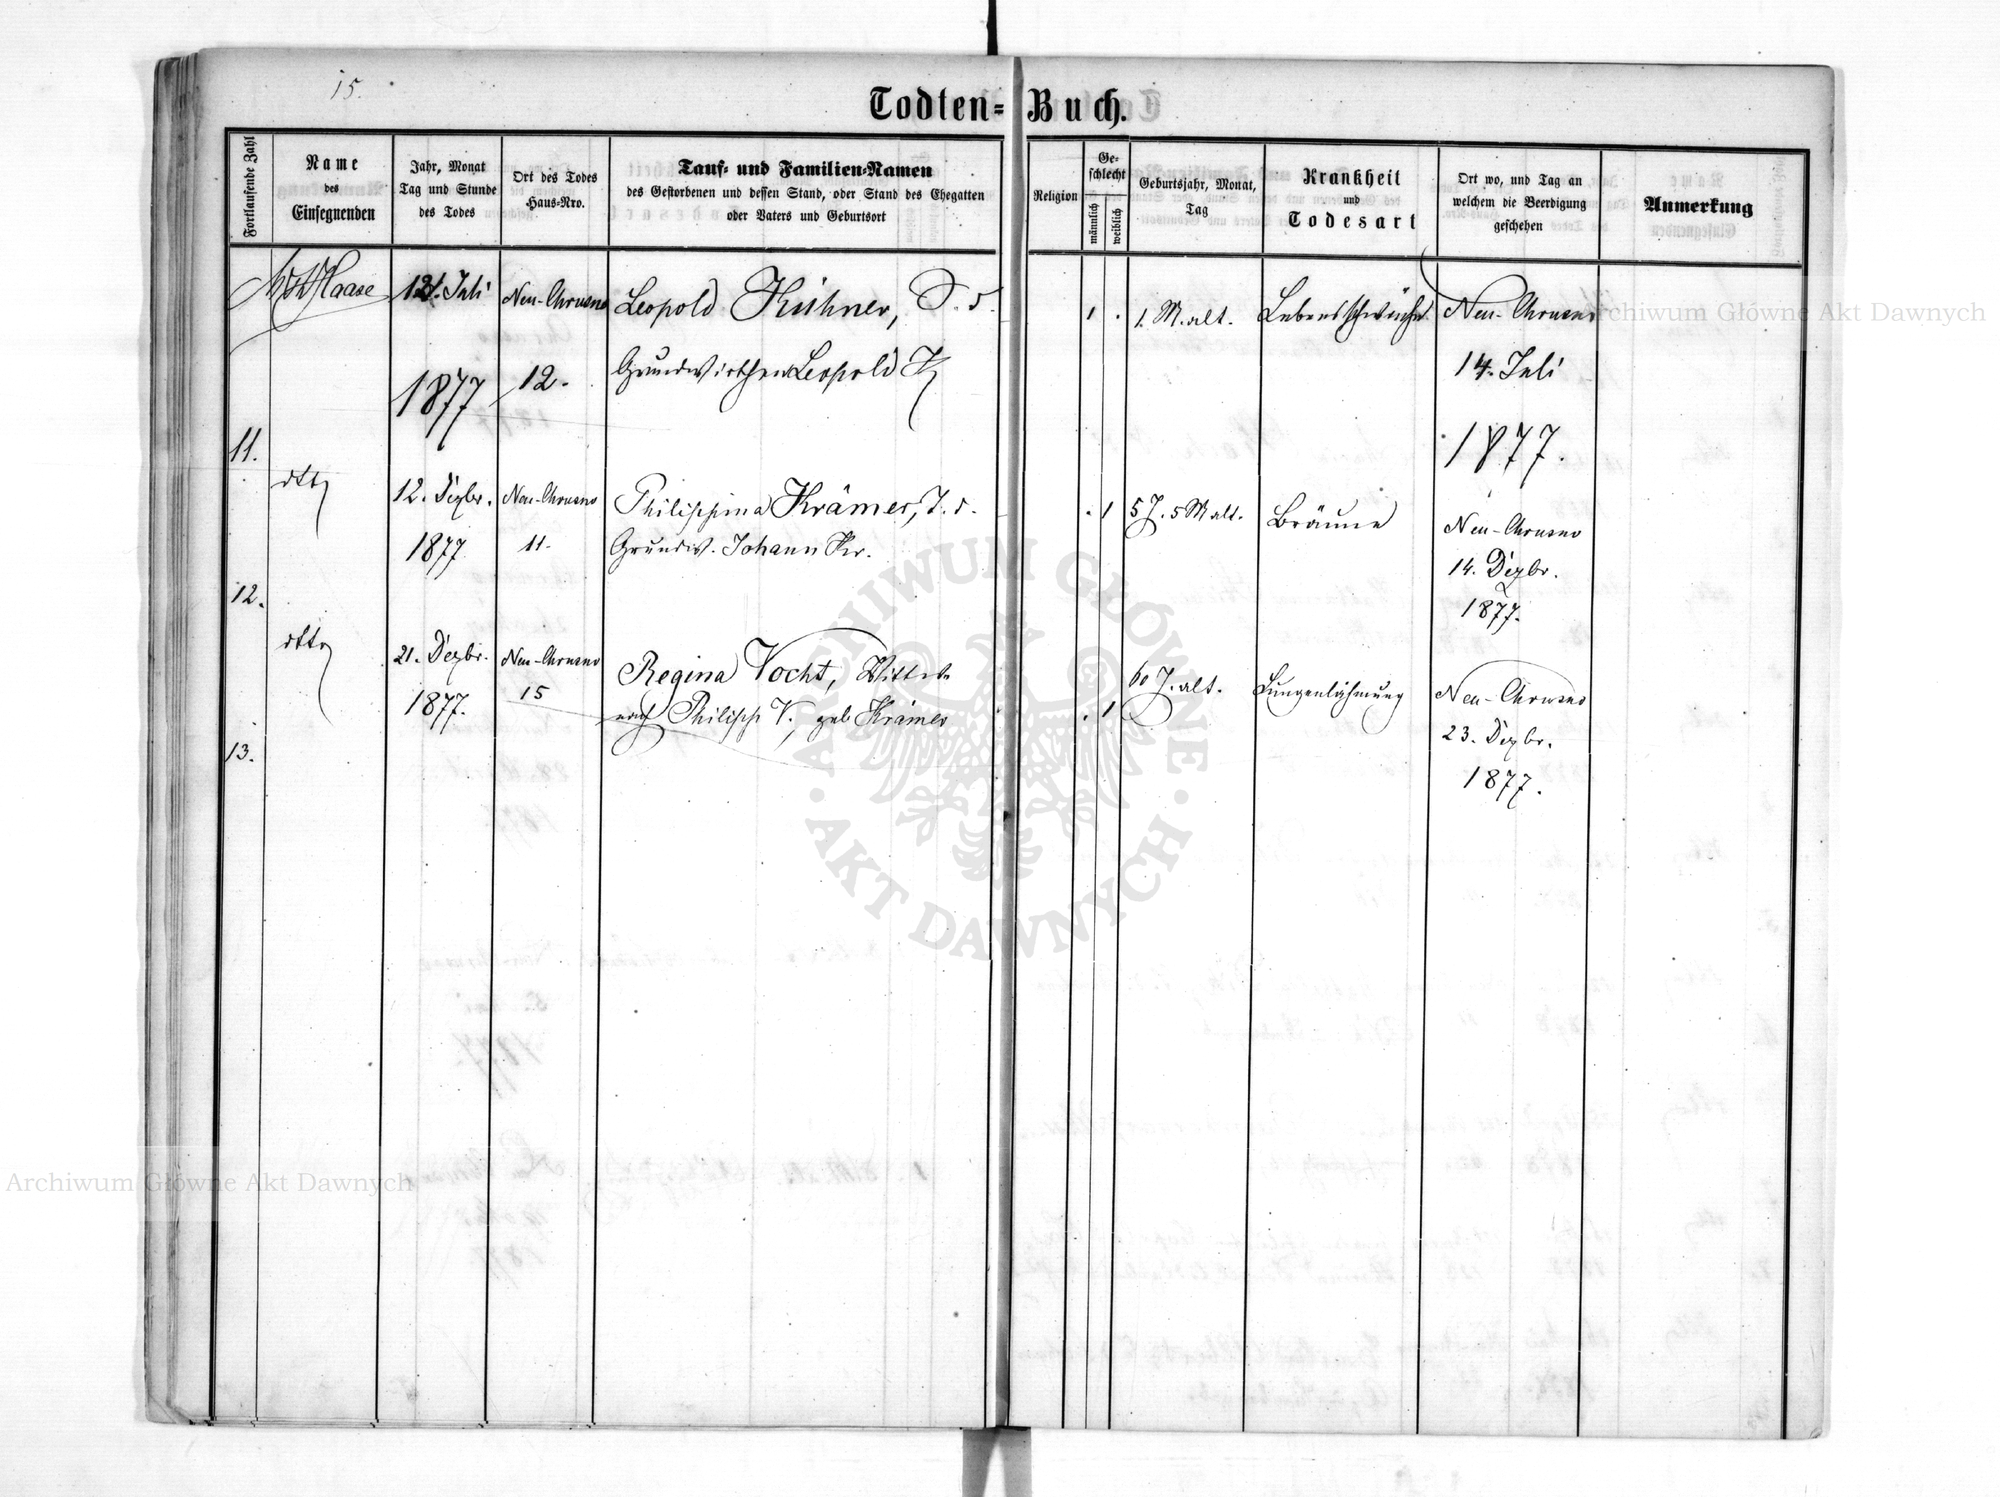 15.
Todten-Buch.
Fortlaufende Zahl
Name
des
Einsegnenden
Jahr, Monat
Tag und Stunde
des Todes
Ort des Todes
Haus-Nro.
Tauf- und Familien-Namen
des Gestorbenen und dessen Stand, oder Stand des Ehegatten
oder Vaters und Geburtsort
Religion
Geschlecht
männlich
weiblich
Geburtsjahr, Monat,
Tag
Krankheit
und
Todesart
Ort wo, und Tag an
welchem die Beerdigung
geschehen
Anmerkung
11.
Haase
Juli
1877
Neu-Chrusno
12.
Leopold Kühner, S. d.
Grundwirthen Leopold K
1 .
1. M. alt.
Lebensschwäche
Neu-Chrusno
14. Juli
1877.
12.
dtto
12. Dezbr.
1877
Neu-Chrusno
11.
Philippina Krämer, T. d.
Grundw. Johann Kr.
. 1
5 J. 5 M alt.
Bräune
Neu-Chrusno
14. Dezbr.
1877.
13.
dtto
21. Dezbr.
1877.
Neu-Chrusno
15
Regina Vocht, Wittwe
nach Philipp V. geb Krämer
. 1
60 J. alt.
Lungenlähmung
Neu-Chrusno
23. Dezbr.
1877.
Archiwum Główne Akt Dawnych
Archiwum Główne Akt Dawnych
ARCHIWUM GŁÓWNE
AKT DAWNYCH